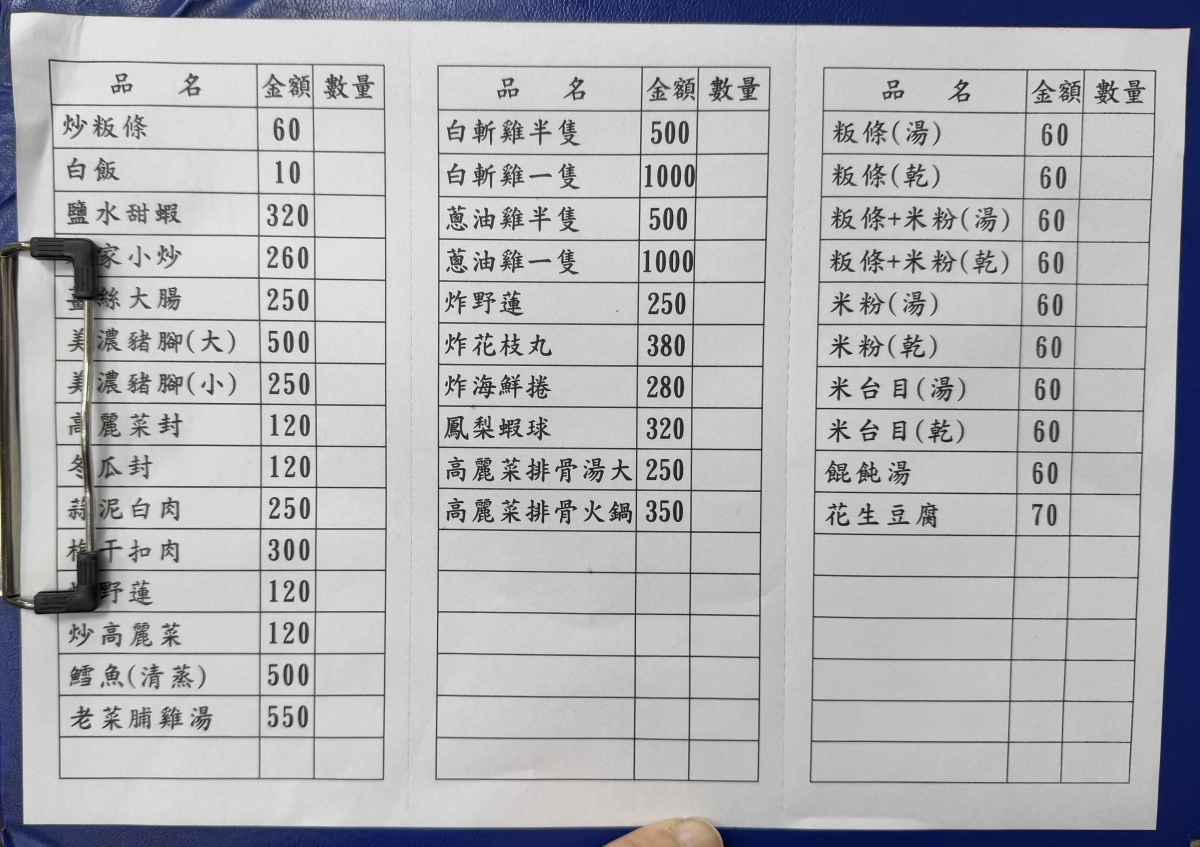 品 名 金額 數量
炒粄條 60
白飯 10
鹽水甜蝦 320
家小炒 260
薑絲大腸 250
美濃豬腳(大) 500
美濃豬腳(小) 250
高麗菜封 120
冬瓜封 120
蒜泥白肉 250
梅干扣肉 300
野蓮 120
炒高麗菜 120
鱈魚(清蒸) 500
老菜脯雞湯 550
品 名 金額 數量
白斬雞半隻 500
白斬雞一隻 1000
蔥油雞半隻 500
蔥油雞一隻 1000
炸野蓮 250
炸花枝丸 380
炸海鮮捲 280
鳳梨蝦球 320
高麗菜排骨湯大 250
高麗菜排骨火鍋 350
品 名 金額 數量
粄條(湯) 60
粄條(乾) 60
粄條+米粉(湯) 60
粄條+米粉(乾) 60
米粉(湯) 60
米粉(乾) 60
米台目(湯) 60
米台目(乾) 60
餛飩湯 60
花生豆腐 70